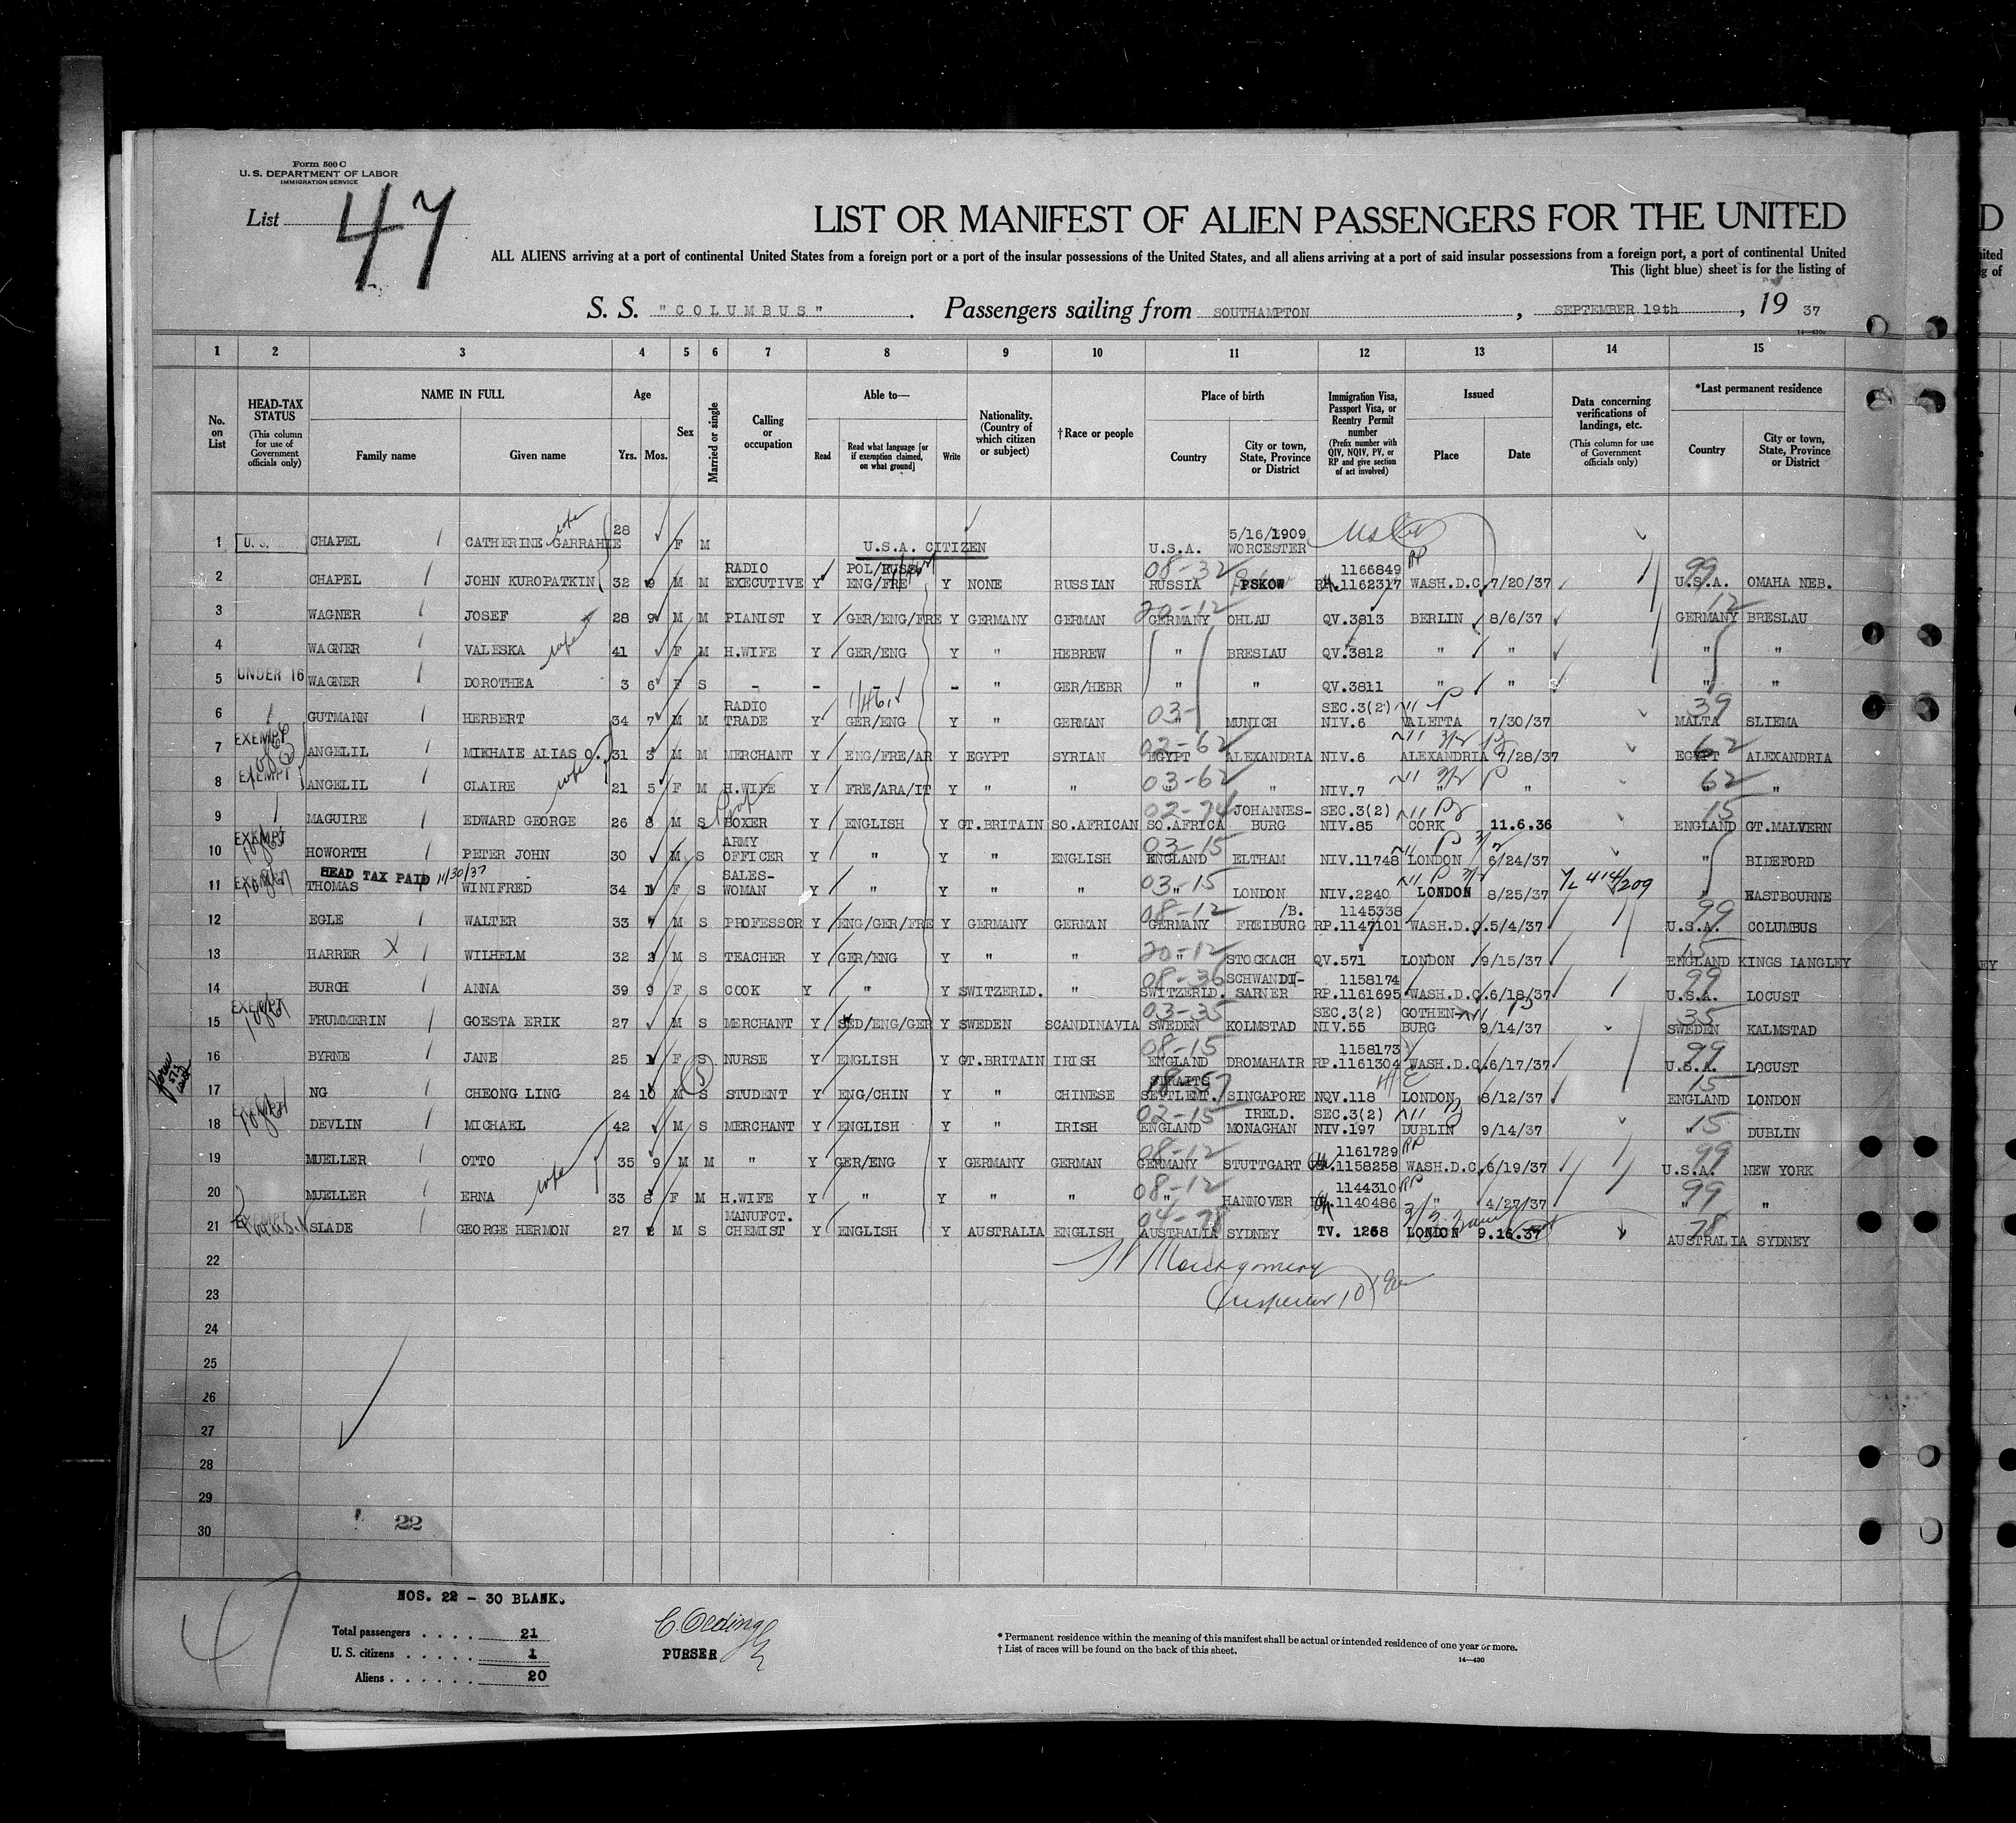 Form 500 C
U. S. DEPARTMENT OF LABOR
IMMIGRATION SERVICE
List 47
LIST OR MANIFEST OF ALIEN PASSENGERS FOR THE UNITED
ALL ALIENS arriving at a port of continental United States from a foreign port or a port of the insular possessions of the United States, and all aliens arriving at a port of said insular possessions from a foreign port, a port of continental United
This (light blue) sheet is for the listing of
S. S. "COLUMBUS" . Passengers sailing from SOUTHAMPTON , SEPTEMBER 19th , 19 37
1 2 3 4 5 6 7 8 9 10 11 12 13 14 15
No. on List
HEAD-TAX STATUS (This column for use of Government officials only)
NAME IN FULL
Family name Given name
Age
Yrs. Mos.
Sex
Married or single
Calling or occupation
Able to—
Read
Read what language [or if exemption claimed, on what ground]
Write
Nationality. (Country of which citizen or subject)
†Race or people
Place of birth
Country City or town, State, Province or District
Immigration Visa, Passport Visa, or Reentry Permit number (Prefix number with QIV, NQIV, PV, or RP and give section of act involved)
Issued
Place Date
Data concerning verifications of landings, etc. (This column for use of Government officials only)
*Last permanent residence
Country City or town, State, Province or District
1 U.S. CHAPEL CATHERINE GARRAHIE 28 F M U.S.A. CITIZEN U.S.A. 5/16/1909 WORCESTER
2 CHAPEL JOHN KUROPATKIN 32 9 M M RADIO EXECUTIVE Y POL/RUSS/ ENG/FRE Y NONE RUSSIAN 08-32 RUSSIA PSKOW 1166849 RP.1162317 WASH.D.C. 7/20/37 99 U.S.A. OMAHA NEB.
3 WAGNER JOSEF 28 9 M M PIANIST Y GER/ENG/FRE Y GERMANY GERMAN 20-12 GERMANY OHLAU QV.3813 BERLIN 8/6/37 12 GERMANY BRESLAU
4 WAGNER VALESKA 41 F M H.WIFE Y GER/ENG Y " HEBREW " BRESLAU QV.3812 " " " "
5 UNDER 16 WAGNER DOROTHEA 3 6 F S - - - - " GER/HEBR " " QV.3811 " " " "
6 GUTMANN HERBERT 34 7 M M RADIO TRADE Y GER/ENG Y " GERMAN 03- " MUNICH SEC.3(2) NIV.6 VALETTA 7/30/37 39 MALTA SLIEMA
7 EXEMPT ANGELIL MIKHAIE ALIAS O. 31 3 M M MERCHANT Y ENG/FRE/AR Y EGYPT SYRIAN 02-62 EGYPT ALEXANDRIA NIV.6 ALEXANDRIA 7/28/37 62 EGYPT ALEXANDRIA
8 EXEMPT ANGELIL CLAIRE 21 5 F M H.WIFE Y FRE/ARA/IT Y " " 03-62 " " NIV.7 " " 62 " "
9 MAGUIRE EDWARD GEORGE 26 8 M S BOXER Y ENGLISH Y GT.BRITAIN SO.AFRICAN 02-74 SO.AFRICA JOHANNES-BURG SEC.3(2) NIV.85 CORK 11.6.36 15 ENGLAND GT.MALVERN
10 EXEMPT HOWORTH PETER JOHN 30 M S ARMY OFFICER Y " Y " ENGLISH 03-15 ENGLAND ELTHAM NIV.11748 LONDON 6/24/37 " BIDEFORD
11 EXEMPT HEAD TAX PAID 11/30/37 THOMAS WINIFRED 34 F S SALES-WOMAN Y " Y " " 03-15 " LONDON NIV.2240 LONDON 8/25/37 414/209 " EASTBOURNE
12 EGLE WALTER 33 M S PROFESSOR Y ENG/GER/FRE Y GERMANY GERMAN 08-12 GERMANY /B. FREIBURG 1145338 RP.1147101 WASH.D.C. 5/4/37 99 U.S.A. COLUMBUS
13 HARRER X WILHELM 32 2 M S TEACHER Y GER/ENG Y " " 20-12 " STOCKACH QV.571 LONDON 9/15/37 15 ENGLAND KINGS LANGLEY
14 BURCH ANNA 39 9 F S COOK Y " Y SWITZERLD. " 08-36 SWITZERLD. SCHWANDI-SARNER 1158174 RP.1161695 WASH.D.C. 6/18/37 99 U.S.A. LOCUST
15 EXEMPT FRUMMERIN GOESTA ERIK 27 M S MERCHANT Y SED/ENG/GER Y SWEDEN SCANDINAVIA 03-35 SWEDEN KOLMSTAD SEC.3(2) NIV.55 GOTHEN-BURG 9/14/37 35 SWEDEN KALMSTAD
16 BYRNE JANE 25 1 F S NURSE Y ENGLISH Y GT.BRITAIN IRISH 08-15 ENGLAND DROMAHAIR 1158173 RP.1161304 WASH.D.C. 6/17/37 99 U.S.A. LOCUST
17 NG CHEONG LING 24 10 M S STUDENT Y ENG/CHIN Y " CHINESE STRAITS SETTLEMT. SINGAPORE NQV.118 LONDON 8/12/37 15 ENGLAND LONDON
18 DEVLIN MICHAEL 42 M S MERCHANT Y ENGLISH Y " IRISH 02-15 ENGLAND IRELD. MONAGHAN SEC.3(2) NIV.197 DUBLIN 9/14/37 15 " DUBLIN
19 MUELLER OTTO 35 9 M M " Y GER/ENG Y GERMANY GERMAN 08-12 GERMANY STUTTGART 1161729 1158258 WASH.D.C. 6/19/37 99 U.S.A. NEW YORK
20 MUELLER ERNA 33 8 F M H.WIFE Y " Y " " 08-12 " HANNOVER 1144310 RP.1140486 " 4/27/37 99 " "
21 EXEMPT SLADE GEORGE HERMON 27 2 M S MANUFCT. CHEMIST Y ENGLISH Y AUSTRALIA ENGLISH 04-78 AUSTRALIA SYDNEY TV. 1268 LONDON 9.16.37 78 AUSTRALIA SYDNEY
22 Montgomery
23 Inspector
24
25
26
27
28
29
30
22
47
NOS. 22 - 30 BLANK.
Total passengers . . . . 21
U. S. citizens . . . . . 1
Aliens . . . . . . 20
C. Oeding
PURSER
* Permanent residence within the meaning of this manifest shall be actual or intended residence of one year or more.
† List of races will be found on the back of this sheet.
14—430